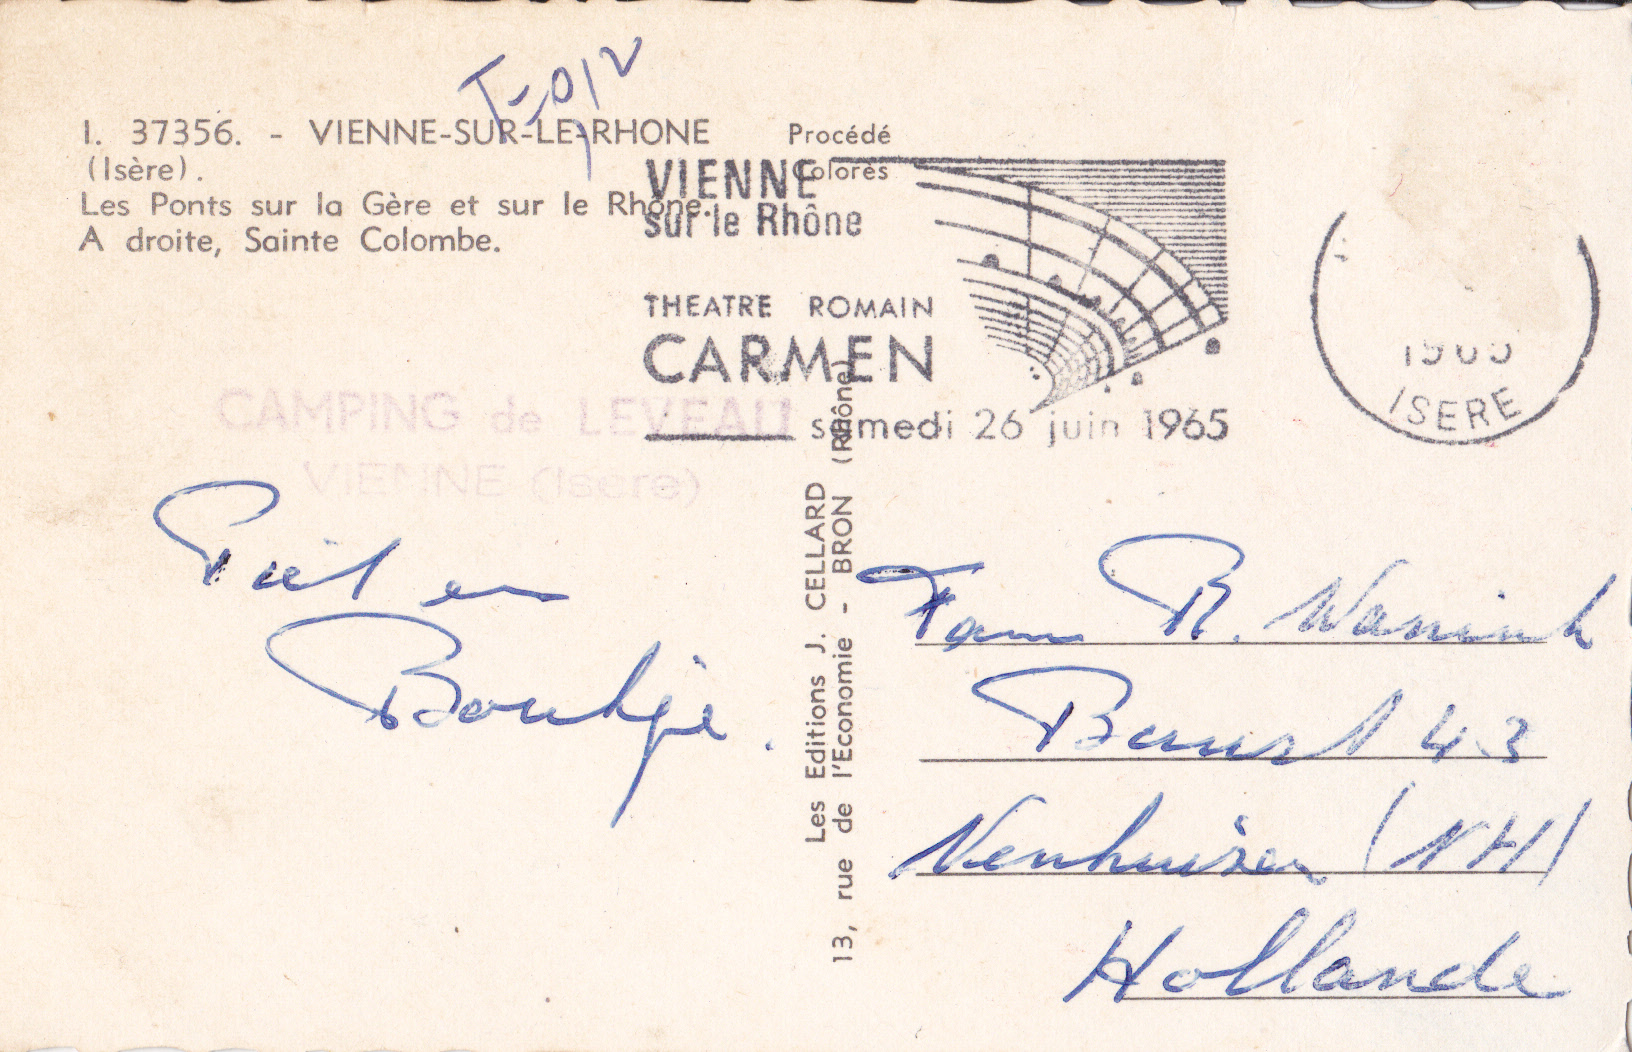 I. 37356. - VIENNE-SUR-LE-RHONE
(Isère).
Les Ponts sur la Gère et sur le Rhône.
A droite, Sainte Colombe.
Procédé
Colorès
VIENNE
sur le Rhône
THEATRE ROMAIN
CARMEN
samedi 26 juin 1965
1965
ISERE
CAMPING de LEVEAU
VIENNE (Isere)
Piet en
Boukje.
Les Editions J. CELLARD
13, rue de l'Economie - BRON (Rhône)
Fam R. Wanink
43
Venhuizen (NH)
Hollande